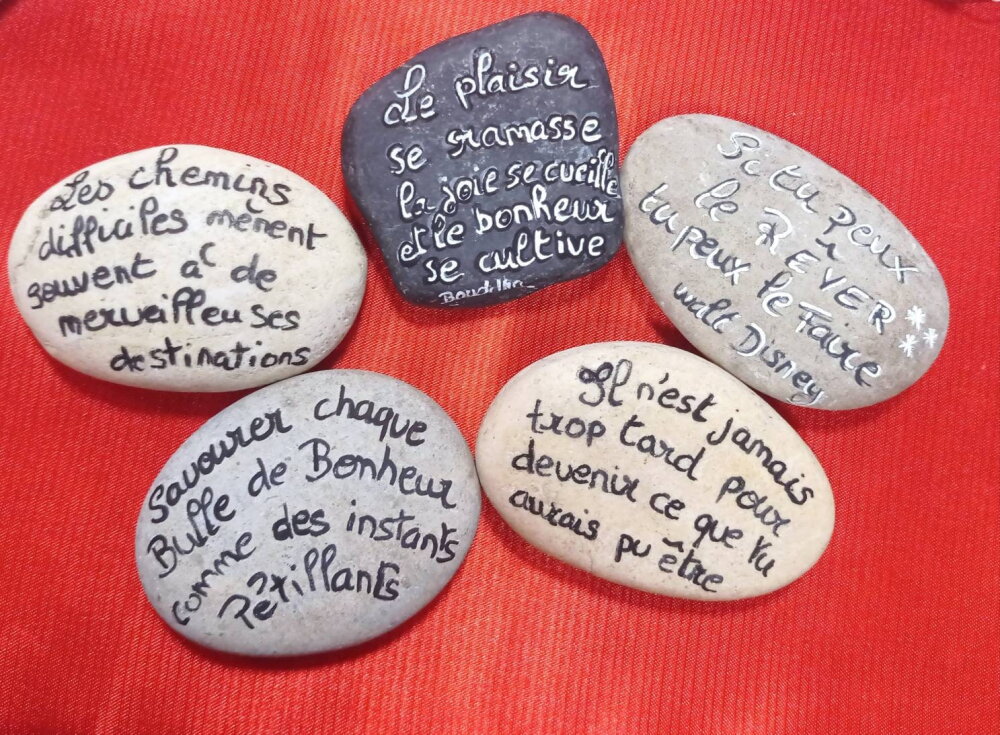 Les chemins
difficiles mènent
souvent à de
merveilleuses
destinations
Le plaisir
se ramasse
la joie se cueille
et le bonheur
se cultive
Si tu peux
le RÊVER
tu peux le Faire
walt Disney
Savourer chaque
Bulle de Bonheur
comme des instants
Pétillants
Il n'est jamais
trop tard pour
devenir ce que tu
aurais pu être